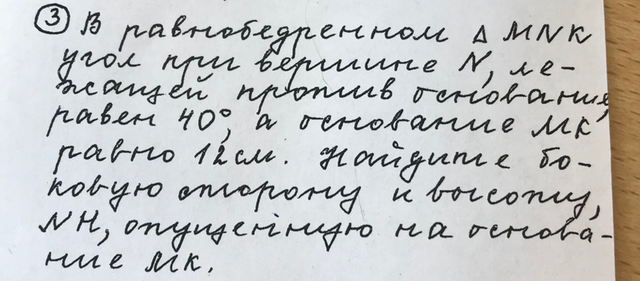 ③ В равнобедренном △ MNK
угол при вершине N, ле-
жащей против основания,
равен 40°, а основание MK
равно 12 см. Найдите бо-
ковую сторону и высоту,
NH, опущенную на основа-
ние MK.